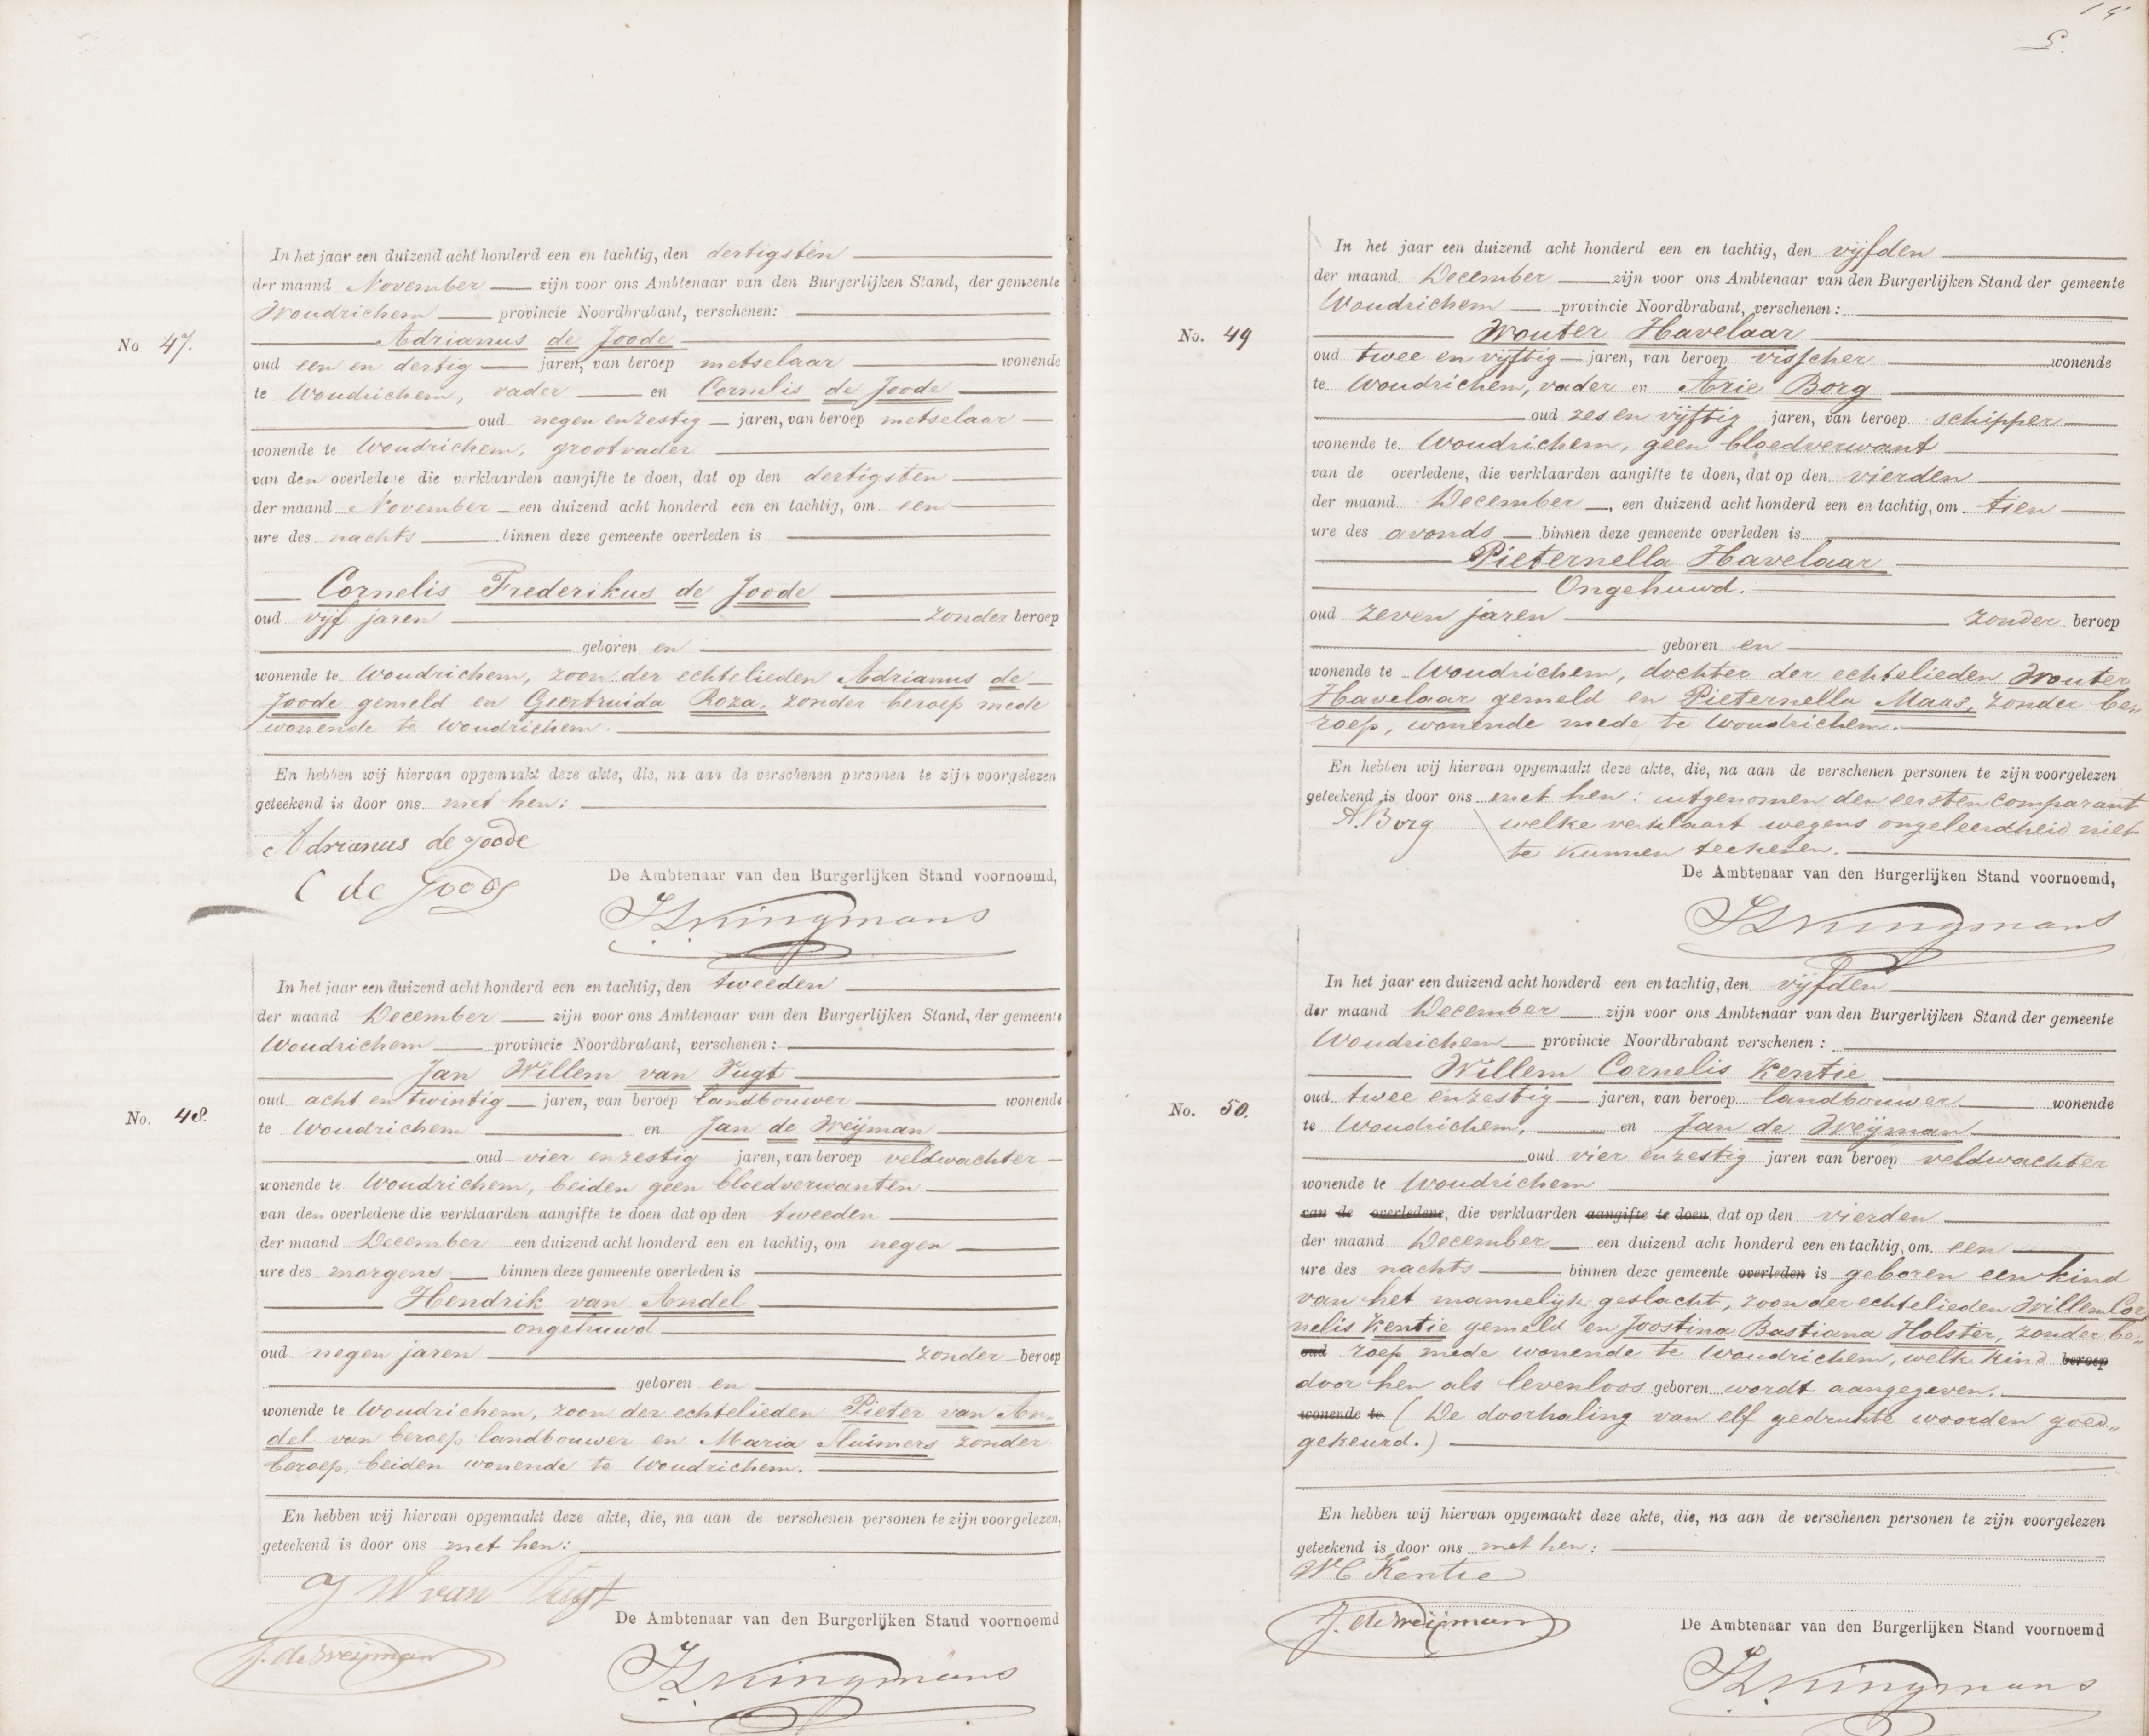 In het jaar een duizend acht honderd een en tachtig, den dertigsten
der maand November zijn voor ons Ambtenaar van den Burgerlijken Stand, der gemeente
Woudrichem provincie Noordbrabant, verschenen:
Adrianus de Joode
No 47.
oud een en dertig jaren, van beroep metselaar wonende
te Woudrichem, vader en Cornelis de Joode
oud negen en zestig jaren, van beroep metselaar
wonende te Woudrichem, grootvader
van den overledene die verklaarden aangifte te doen, dat op den dertigsten
der maand November een duizend acht honderd een en tachtig, om een
ure des nachts binnen deze gemeente overleden is
Cornelis Frederikus de Joode
oud vijf jaren zonder beroep
geboren en
wonende te Woudrichem, zoon der echtelieden Adrianus de
Joode gemeld en Geertruida Roza, zonder beroep mede
wonende te Woudrichem.
En hebben wij hiervan opgemaakt deze akte, die, na aan de verschenen personen te zijn voorgelezen
geteekend is door ons met hen:
Adrianus de Joode
C de Joode
De Ambtenaar van den Burgerlijken Stand voornoemd,
In het jaar een duizend acht honderd een en tachtig, den tweeden
der maand December zijn voor ons Ambtenaar van den Burgerlijken Stand, der gemeente
Woudrichem provincie Noordbrabant, verschenen:
Jan Willem van Vugt
oud acht en twintig jaren, van beroep landbouwer wonende
No. 48.
te Woudrichem en Jan de Weijman
oud vier en zestig jaren, van beroep veldwachter
wonende te Woudrichem, beiden geen bloedverwanten
van den overledene die verklaarden aangifte te doen dat op den tweeden
der maand December een duizend acht honderd een en tachtig, om negen
ure des morgens binnen deze gemeente overleden is
Hendrik van Andel
ongehuwd
oud negen jaren zonder beroep
geboren en
wonende te Woudrichem, zoon der echtelieden Pieter van An„
del van beroep landbouwer en Maria Sluimers zonder
beroep, beiden wonende te Woudrichem.
En hebben wij hiervan opgemaakt deze akte, die, na aan de verschenen personen te zijn voorgelezen,
geteekend is door ons met hen:
J W van Vugt
De Ambtenaar van den Burgerlijken Stand voornoemd
J. de Weijman
5.
In het jaar een duizend acht honderd een en tachtig, den vijfden
der maand December zijn voor ons Ambtenaar van den Burgerlijken Stand der gemeente
Woudrichem provincie Noordbrabant, verschenen:
No. 49
Wouter Havelaar
oud twee en vijftig jaren, van beroep visscher wonende
te Woudrichem, vader en Arie Borg
oud zes en vijftig jaren, van beroep schipper
wonende te Woudrichem, geen bloedverwant
van de overledene, die verklaarden aangifte te doen, dat op den vierden
der maand December, een duizend acht honderd een en tachtig, om tien
ure des avonds binnen deze gemeente overleden is
Pieternella Havelaar
Ongehuwd.
oud zeven jaren zonder beroep
geboren en
wonende te Woudrichem, dochter der echtelieden Wouter
Havelaar gemeld en Pieternella Maas, zonder be„
roep, wonende mede te Woudrichem.
En hebben wij hiervan opgemaakt deze akte, die, na aan de verschenen personen te zijn voorgelezen
geteekend is door ons met hen: uitgenomen den eersten comparant
A. Borg welke verklaart wegens ongeleerdheid niet
te kunnen teekenen.
De Ambtenaar van den Burgerlijken Stand voornoemd,
In het jaar een duizend acht honderd een en tachtig, den vijfden
der maand December zijn voor ons Ambtenaar van den Burgerlijken Stand der gemeente
Woudrichem provincie Noordbrabant verschenen:
Willem Cornelis Kentie
oud twee en zestig jaren, van beroep landbouwer wonende
No. 50.
te Woudrichem, en Jan de Weijman
oud vier en zestig jaren van beroep veldwachter
wonende te Woudrichem
van de overledene, die verklaarden aangifte te doen, dat op den vierden
der maand December een duizend acht honderd een en tachtig, om een
ure des nachts binnen deze gemeente overleden is geboren een kind
van het mannelijk geslacht, zoon der echtelieden Willem Cor
nelis Kentie gemeld en Joostina Bastiana Holster, zonder be„
oud roep mede wonende te Woudrichem, welk kind beroep
door hen als levenloos geboren wordt aangegeven.
wonende te (De doorhaling van elf gedrukte woorden goed„
gekeurd.)
En hebben wij hiervan opgemaakt deze akte, die, na aan de verschenen personen te zijn voorgelezen
geteekend is door ons met hen:
W C Kentie
J. de Weijman
De Ambtenaar van den Burgerlijken Stand voornoemd